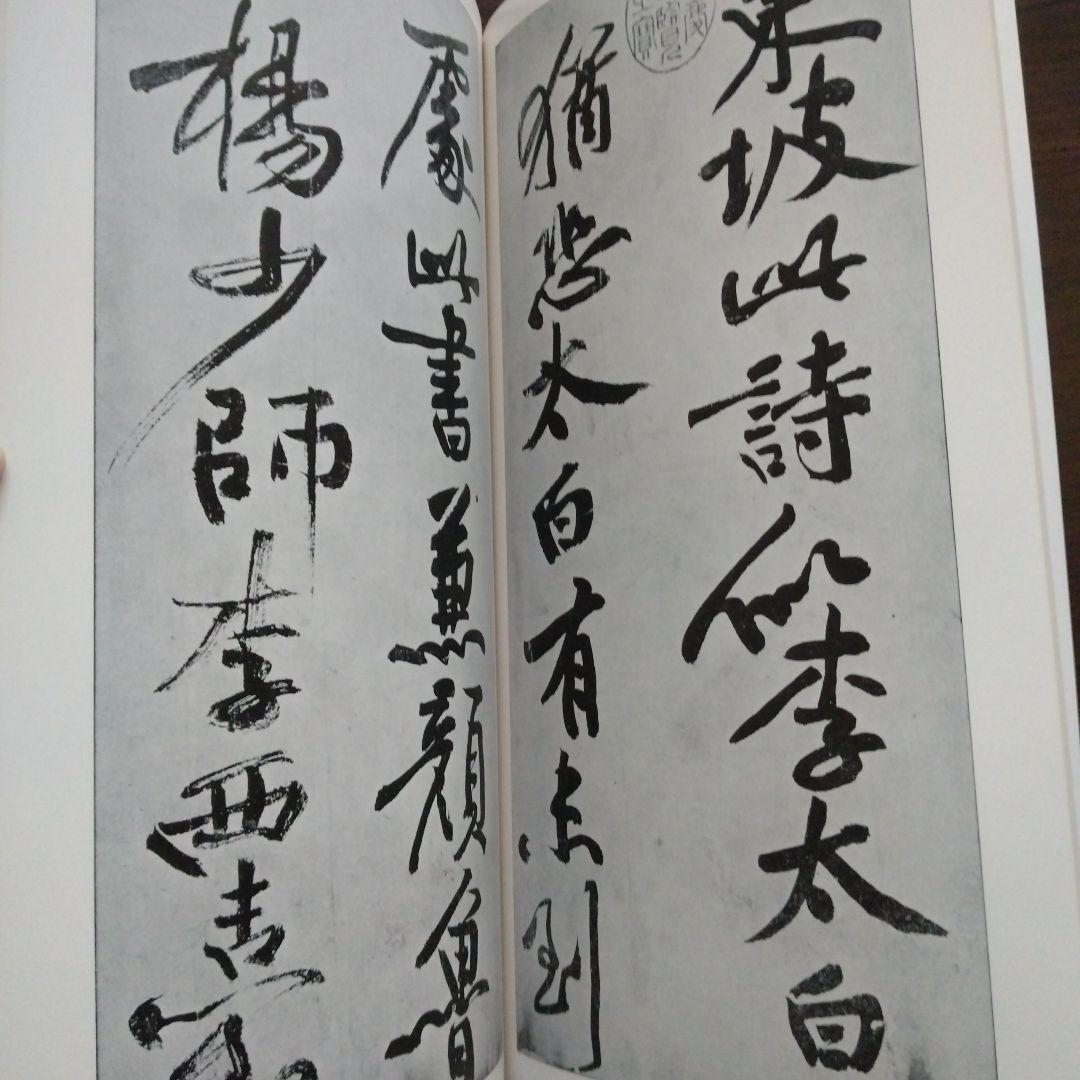 東坡此詩似李太白
猶恐太白有未到
處此書兼顏魯
楊少師李西臺